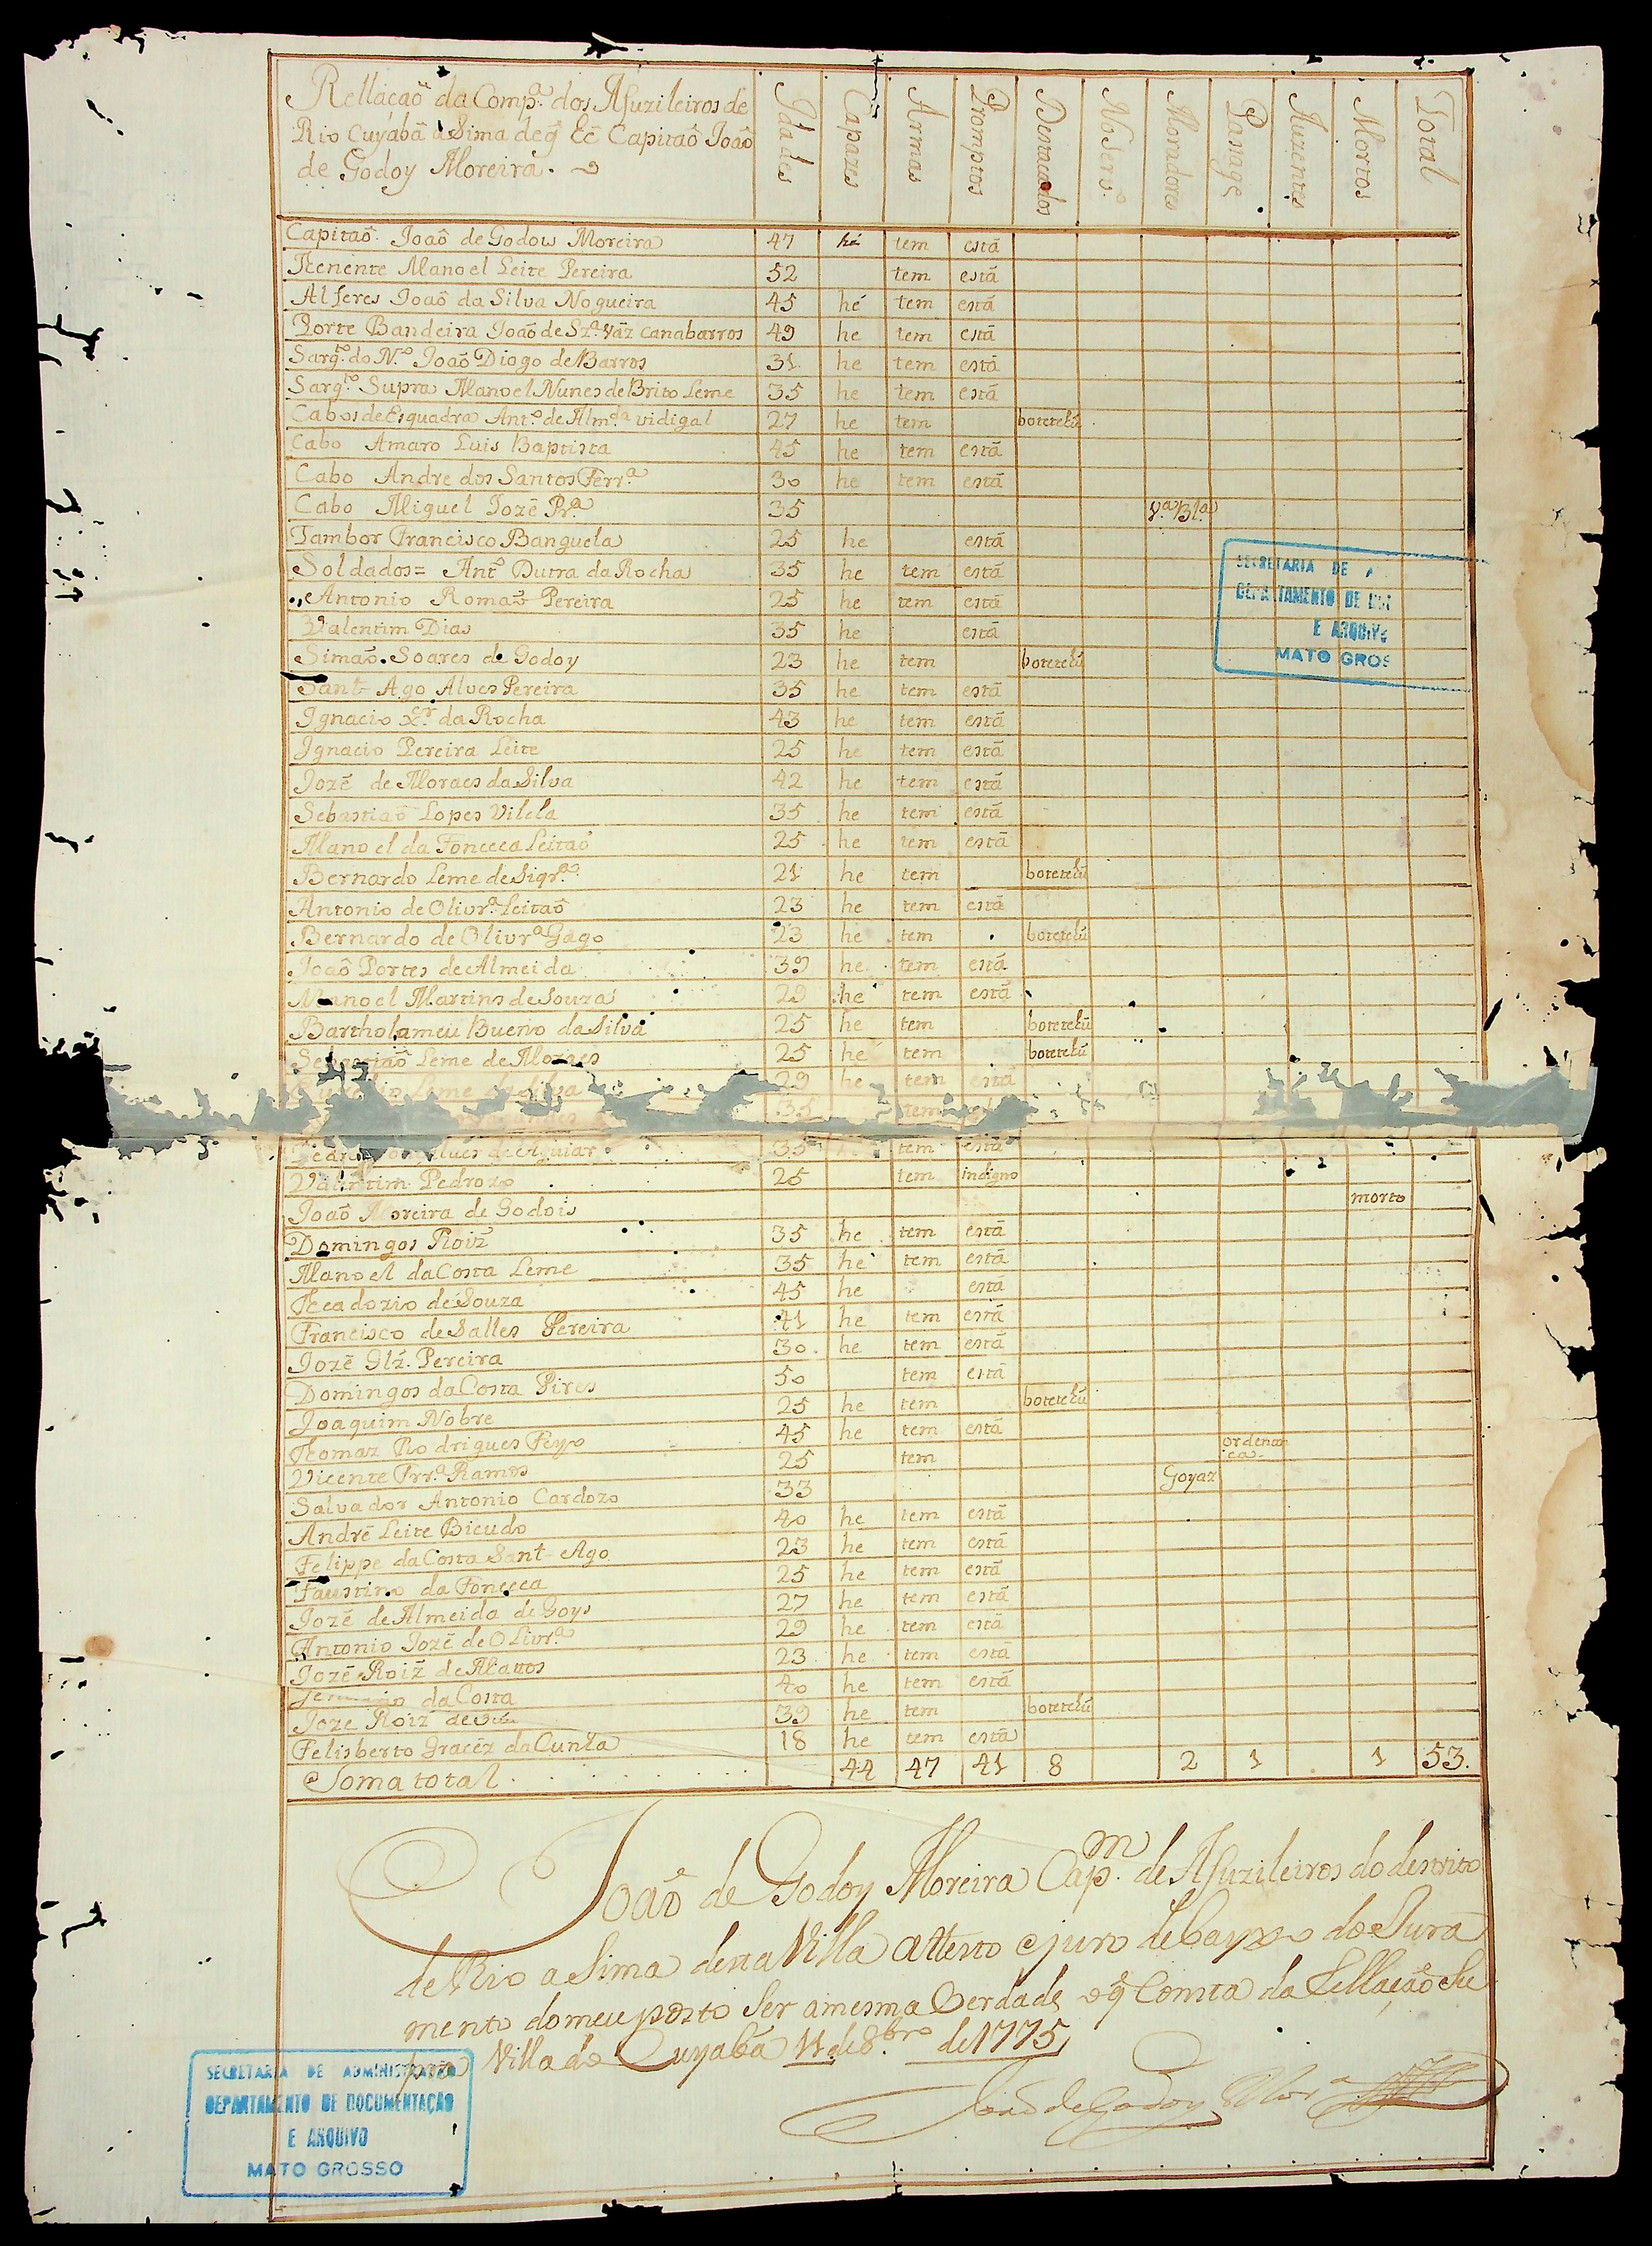 Rellacaõ da Comp.ª dos Afuzileiros de
Rio Cuyabâ a Sima de q̃ hé Capitaõ Joaõ
de Godoy Moreira.
Idades Capazes Armas Promptos Destacados Moradores Pasage Auzentes Mortos Total
Capitaõ Joaõ de Godow Moreira 47 hé tem está
Thenente Manoel Leite Pereira 52 tem está
Alferes Joaõ da Silva Nogueira 45 hé tem está
Porte Bandeira Joaõ de Sz.ª Váz Canabarros 49 he tem está
Sarg.to do N.º Joaõ Diogo de Barros 31 he tem está
Sarg.to Supra Manoel Nunes de Brito Leme 35 he tem está
Cabos de Esquadra Ant.º de Alm.da vidigal 27 he tem botetehú
Cabo Amaro Luis Baptista 45 he tem está
Cabo Andre dos Santos Ferr.ª 30 he tem está
Cabo Miguel Jozé Pr.ª 35 V.ª Bl.ª
Tambor Francisco Banguela 25 he está
Soldados= Ant.º Dutra da Rocha 35 he tem está
Antonio Romaõ Pereira 25 he tem está
Valentim Dias 35 he está
Simaõ Soares de Godoy 23 he tem botetehú
Sant-Ago Alves Pereira 35 he tem está
Ignacio X.er da Rocha 43 he tem está
Ignacio Pereira Leite 25 he tem está
Jozé de Moraes da Silva 42 he tem está
Sebastiaõ Lopes Vilela 35 he tem está
Manoel da Fonceca Leitaõ 25 he tem está
Bernardo Leme de Siqr.ª 21 he tem botetehú
Antonio de Olivr.ª Leitaõ 23 he tem está
Bernardo de Olivr.ª Gago 23 he tem botetehú
Joaõ Portes de Almeida 39 he tem está
Manoel Martins de Souza 29 he tem está
Bartholameu Bueno da Silva 25 he tem botetehú
Sebastiaõ Leme de Moraes 25 he tem botetehú
Leme 29 he tem está
35 tem
de Aguiar 35 tem está
Valentim Pedrozo 25 tem indigno
Joaõ Moreira de Godois morto
Domingos Roiz̃ 35 he tem está
Manoel da Costa Leme 35 he tem está
Theadozio de Souza 45 he está
Francisco de Salles Pereira 41 he tem está
Jozé Glz̃. Pereira 30 he tem está
Domingos da Costa Pires 50 tem está
Joaquim Nobre 25 he tem botetehú
Thomaz Rodrigues Peyxo 45 he tem está
Vicente Frr.ª Ramos 25 tem ordenan
ca
Salvador Antonio Cardozo 33 Goyaz
André Leite Bicudo 40 he tem está
Felippe da Costa Sant-Ago 23 he tem está
Faustino da Fonceca 25 he tem está
Jozé de Almeida de Goys 27 he tem está
Antonio Jozé de Olivr.ª 29 he tem está
Jozé Roiz̃ de Mattos 23 he tem está
da Costa 40 he tem está
Joze Roiz̃ de 39 he tem botetehú
Felisberto Gracéz da Cunha 18 he tem está
Soma total 44 47 41 8 2 1 1 53.
Joaõ de Godoy Moreira Cap.m de Afuzileiros do destrito
de Rio a Sima desta Villa Attesto e juro debayxo do Jura
mento do meu posto Ser a mesma Verdade o q̃ Comta da Rellaçaõ Su
pra Villa do Cuyabá 11 de 8.bro de 1775
Joaõ de Godoy Mor.ª
SECRETARIA DE A
DEPARTAMENTO DE DO
E ARQUIVO
MATO GROS
SECRETARIA DE ADMINISTRAÇÃO
DEPARTAMENTO DE DOCUMENTAÇÃO
E ARQUIVO
MATO GROSSO